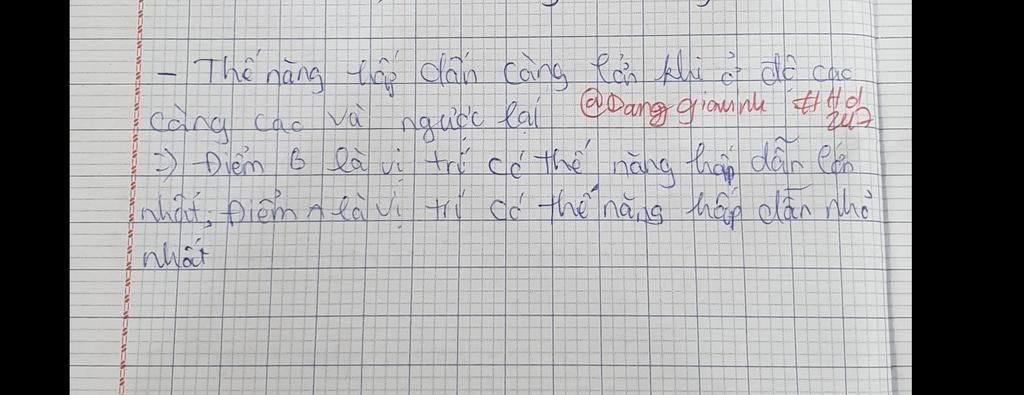 - Thế năng hấp dẫn càng lớn khi ở độ cao
càng cao và ngược lại @Danggiauinh #Hd
247
=> Điểm B là vị trí có thế năng hấp dẫn lớn
nhất; Điểm A là vị trí có thế năng hấp dẫn nhỏ
nhất